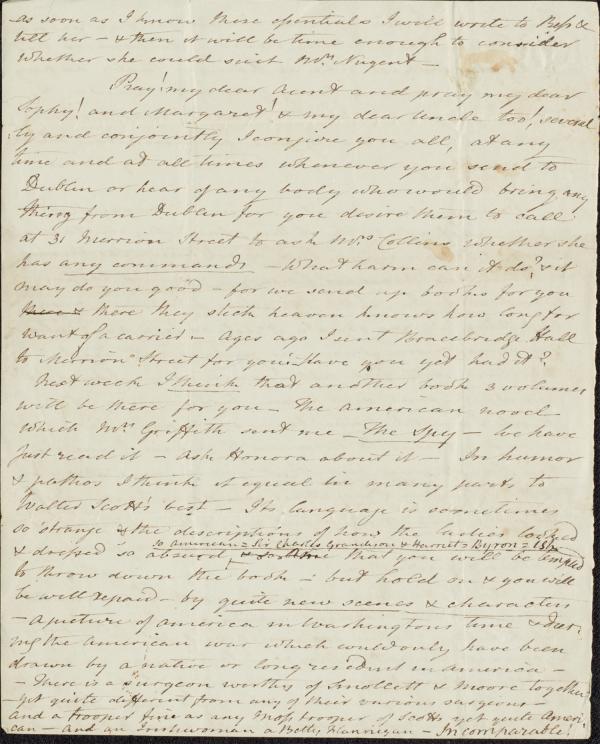 as soon as I know these essentials I will write to Bess &
tell her – & then it will be time enough to consider
whether she could suit Mrs. Nugent –
Pray! my dear Aunt and pray my dear
Sophy! and Margaret! & my dear Uncle too! several
ly and conjointly I conjure you all, at any
time and at all times whenever you send to
Dublin or hear of any body who would bring any
thing from Dublin for you desire them to call
at 31 Merrion Street to ask Mrs. Collins whether she
has any commands – What harm can it do? & it
may do you good – for we send up books for you
there & there they stick heaven knows how long for
want of a carrier – Ages ago I sent Bracebridge Hall
to Merrion Street for you. Have you yet had it?
Next week I think that another book 3 volumes
will be there for you – The American novel
which Mrs. Griffith sent me – The Spy – We have
just read it – Ask Honora about it – In humor
& pathos I think it equal in many parts to
Walter Scott's best – Its language is sometimes
so strange & the descriptions of how the ladies looked
so American = Sir Charles Grandison & Harriet = Byron =
& dressed so absurd that you will be tempted
to throw down the book – but hold on & you will
be well repaid – by quite new scenes & characters
– a picture of America in Washingtons time & dur
ing the American war which could only have been
drawn by a native or long resident in America –
– There is a surgeon worthy of Smollett & Moore together
– yet quite different from any of their various surgeons –
and a trooper fine as any Moss trooper of Scotts yet quite Ameri
can – and an Irishwoman a Betty Flannigan – Incomparable!